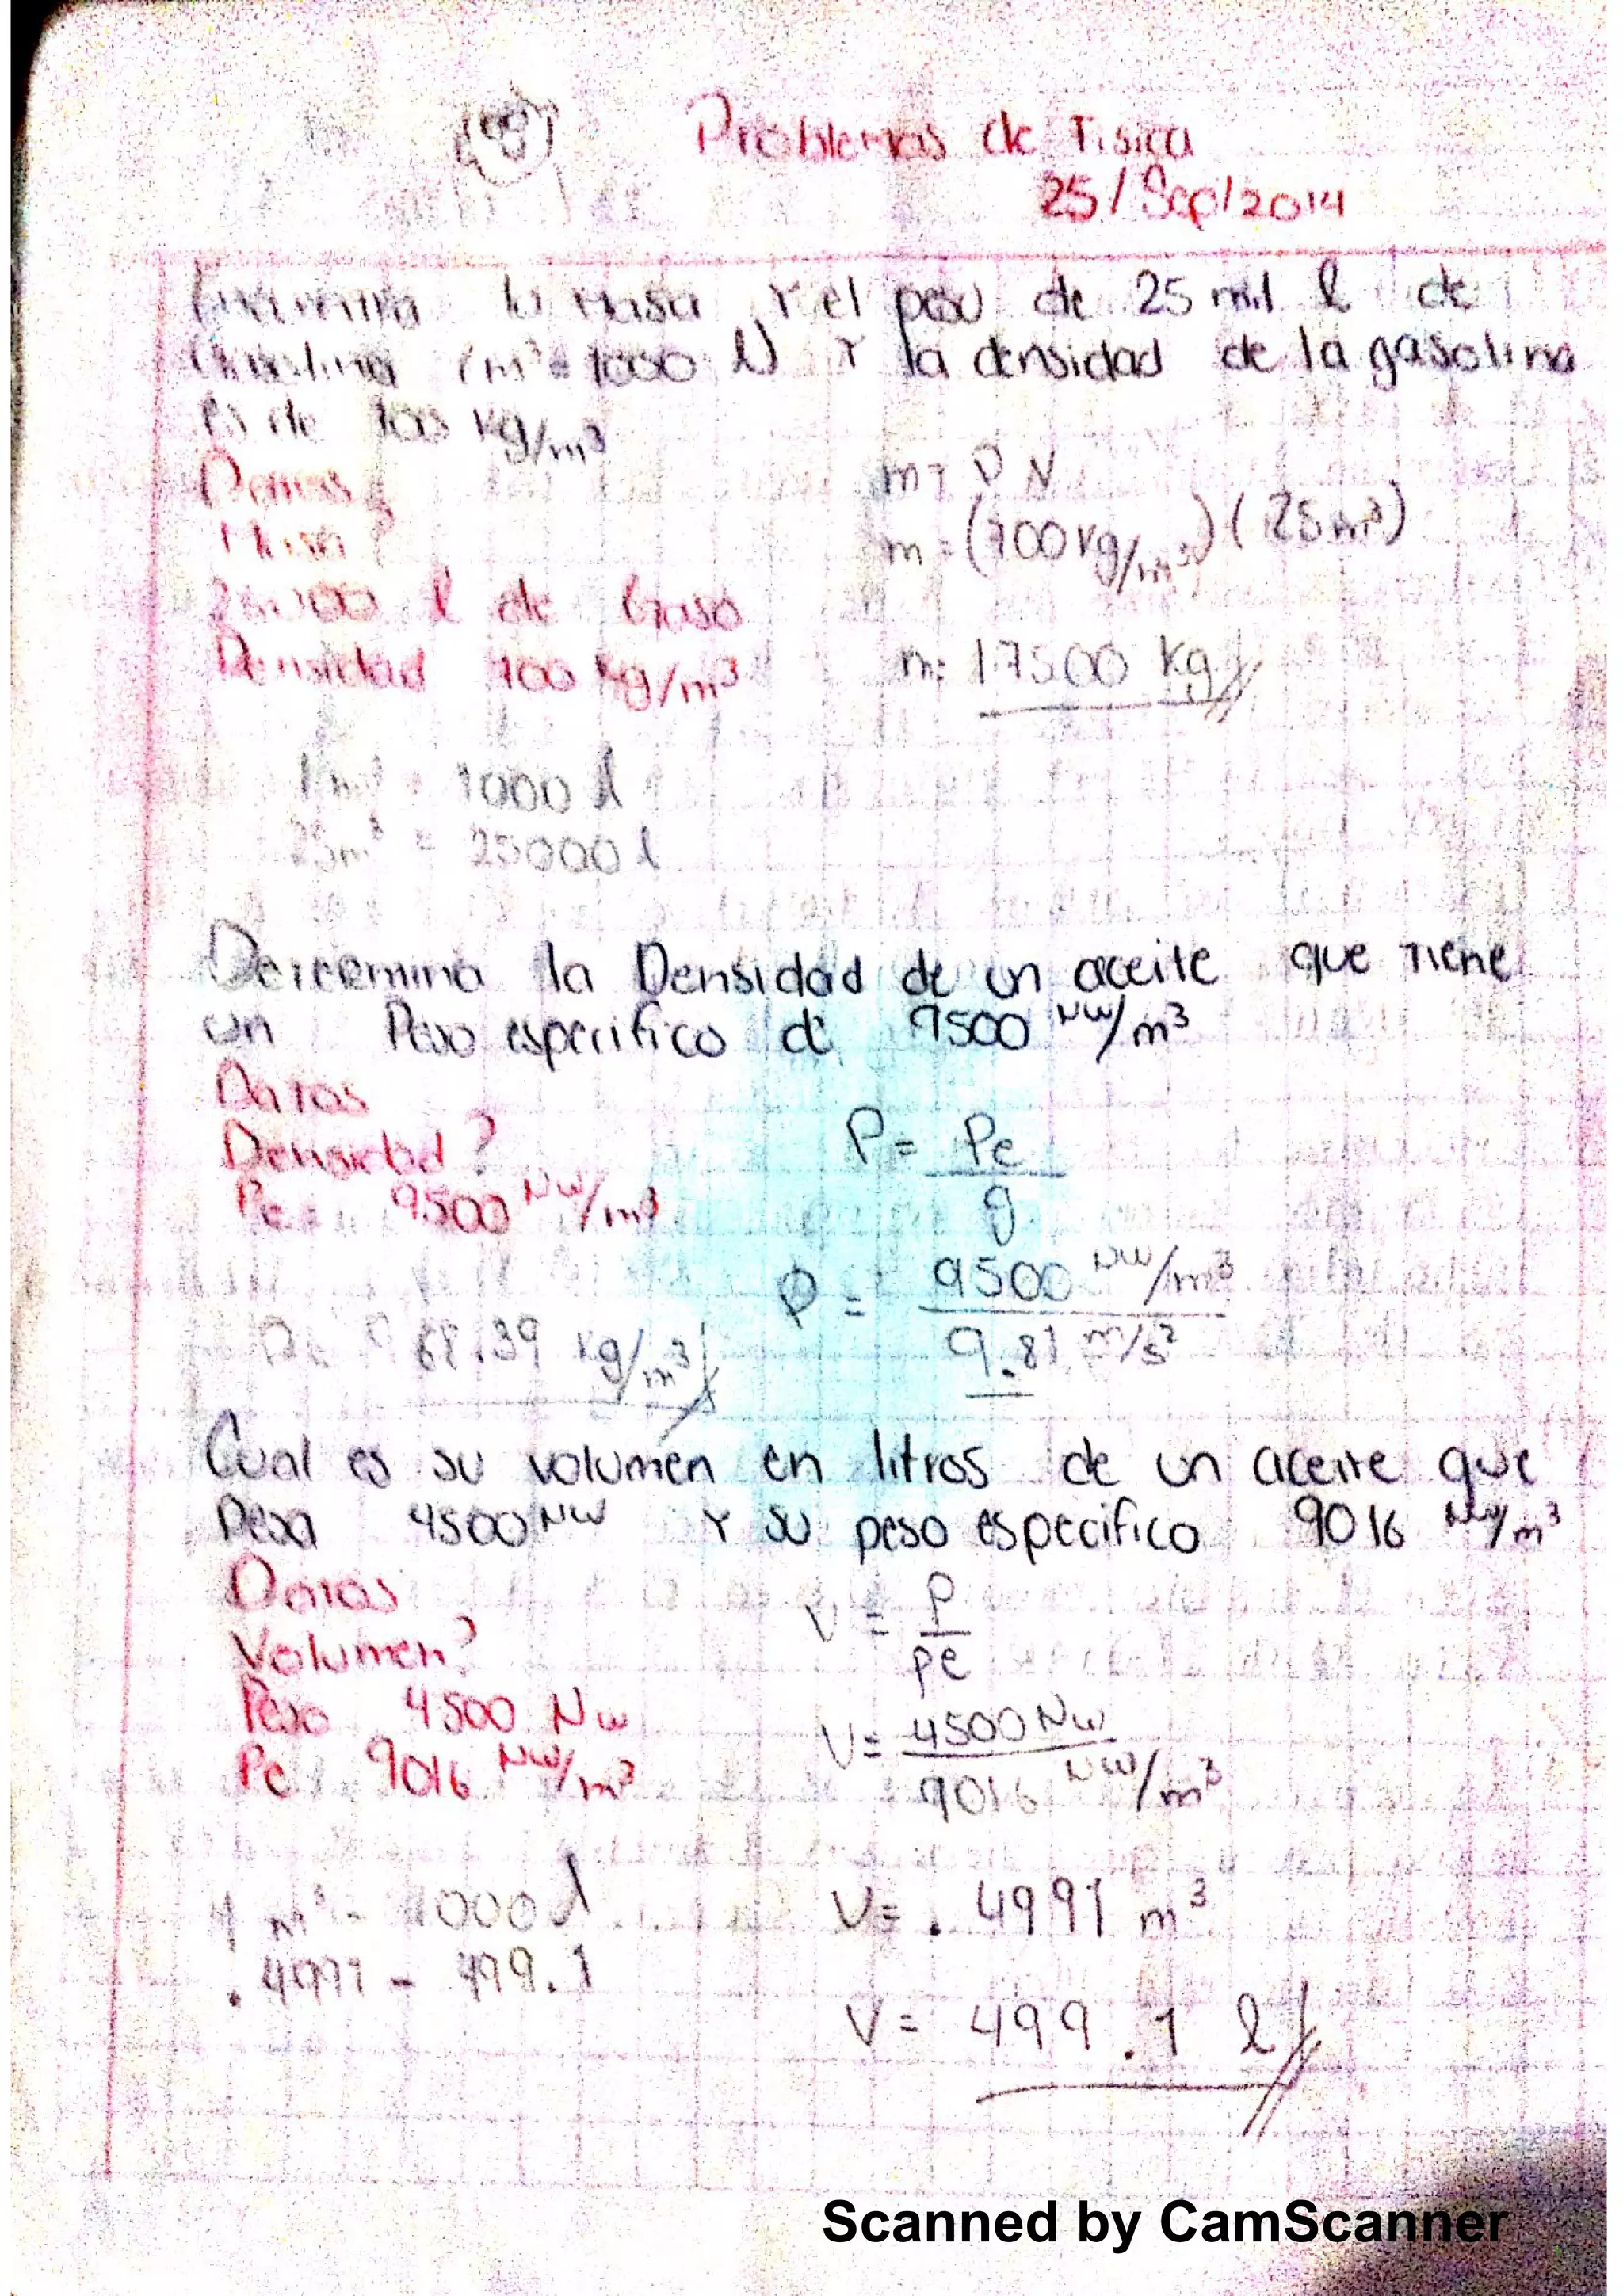 Problemas de Fisica
25/Sep/2014
la masa Y el peso de 25 mil l de
(m³=1000 l) Y la densidad de la gasolina
es de 700 kg/m³
m= P V
Masa ?
m=(700kg/m³)(25m³)
25000 l de Gaso
Densidad 700 kg/m³
m= 17500 kg
1 m³ = 1000 l
25m³ = 25000 l
Determina la Densidad de un aceite que tiene
un Peso especifico de 9500 Nw/m³
Datos
Densidad ?
P= Pe/g
Pe= 9500 Nw/m³
P = 9500 Nw/m³ / 9.81 m/s²
68.39 kg/m³
Cual es su volumen en litros de un aceite que
pesa 4500 Nw Y su peso especifico 9016 Nw/m³
Datos
V = P/pe
Volumen?
Peso 4500 Nw
V= 4500 Nw / 9016 Nw/m³
Pe 9016 Nw/m³
1 m³ - 1000 l
V= .4991 m³
.4991 - 499.1
V= 499.1 l
Scanned by CamScanner